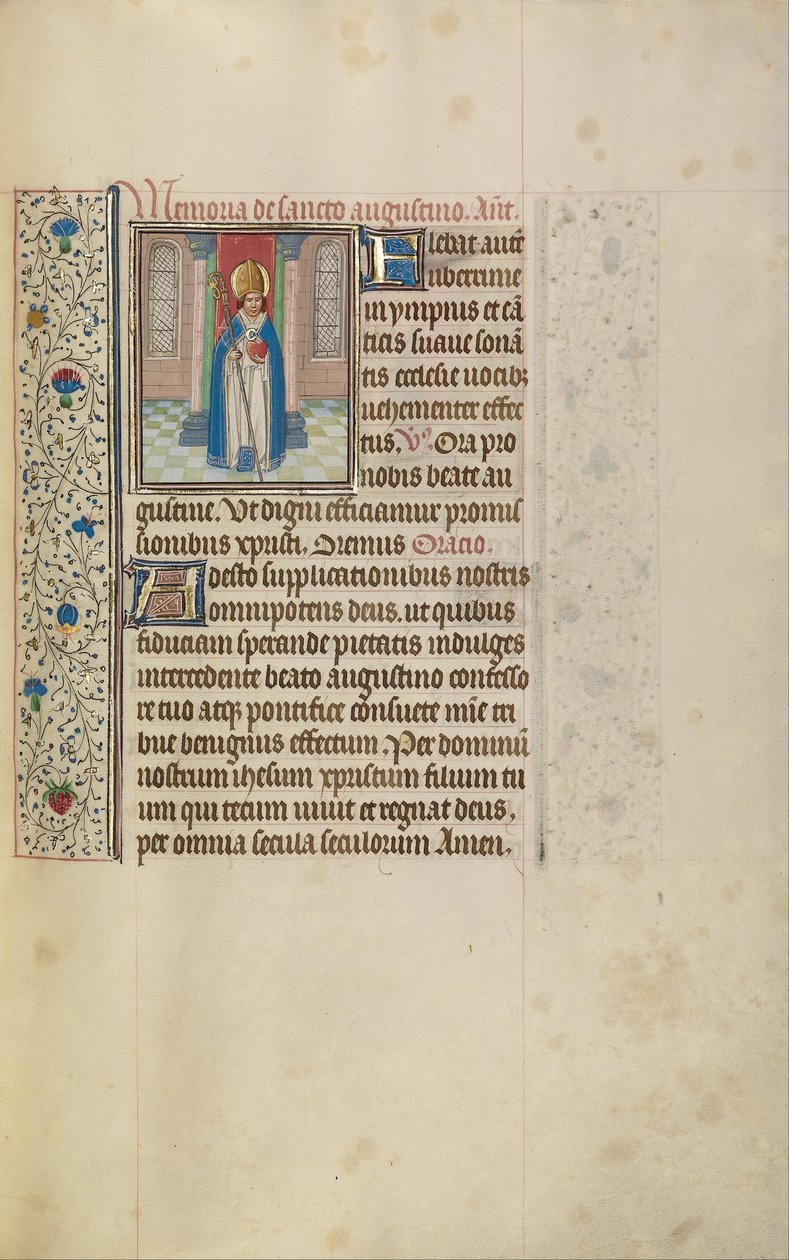 Memoria de sancto augustino. Ant̄.
Flebat autē
uberrime
in ympnis et cā
ticis suaue sonā
tis ecclesie uocibꝫ
uehementer effec
tus, V̄. Ora pro
nobis beate au
gustine. Vt digni efficiamur promis
sionibus xpristi, Oremus Oracio.
Adesto supplicationibus nostris
omnipotens deus. ut quibus
fiduciam sperande pietatis indulges
intercedente beato augustino confesso
re tuo atqꝫ pontifice consuete mīe tri
bue benignus effectum. Per dominū
nostrum ihesum xpristum filium tu
um qui tecum uiuit et regnat deus,
per omnia secula seculorum Amen,